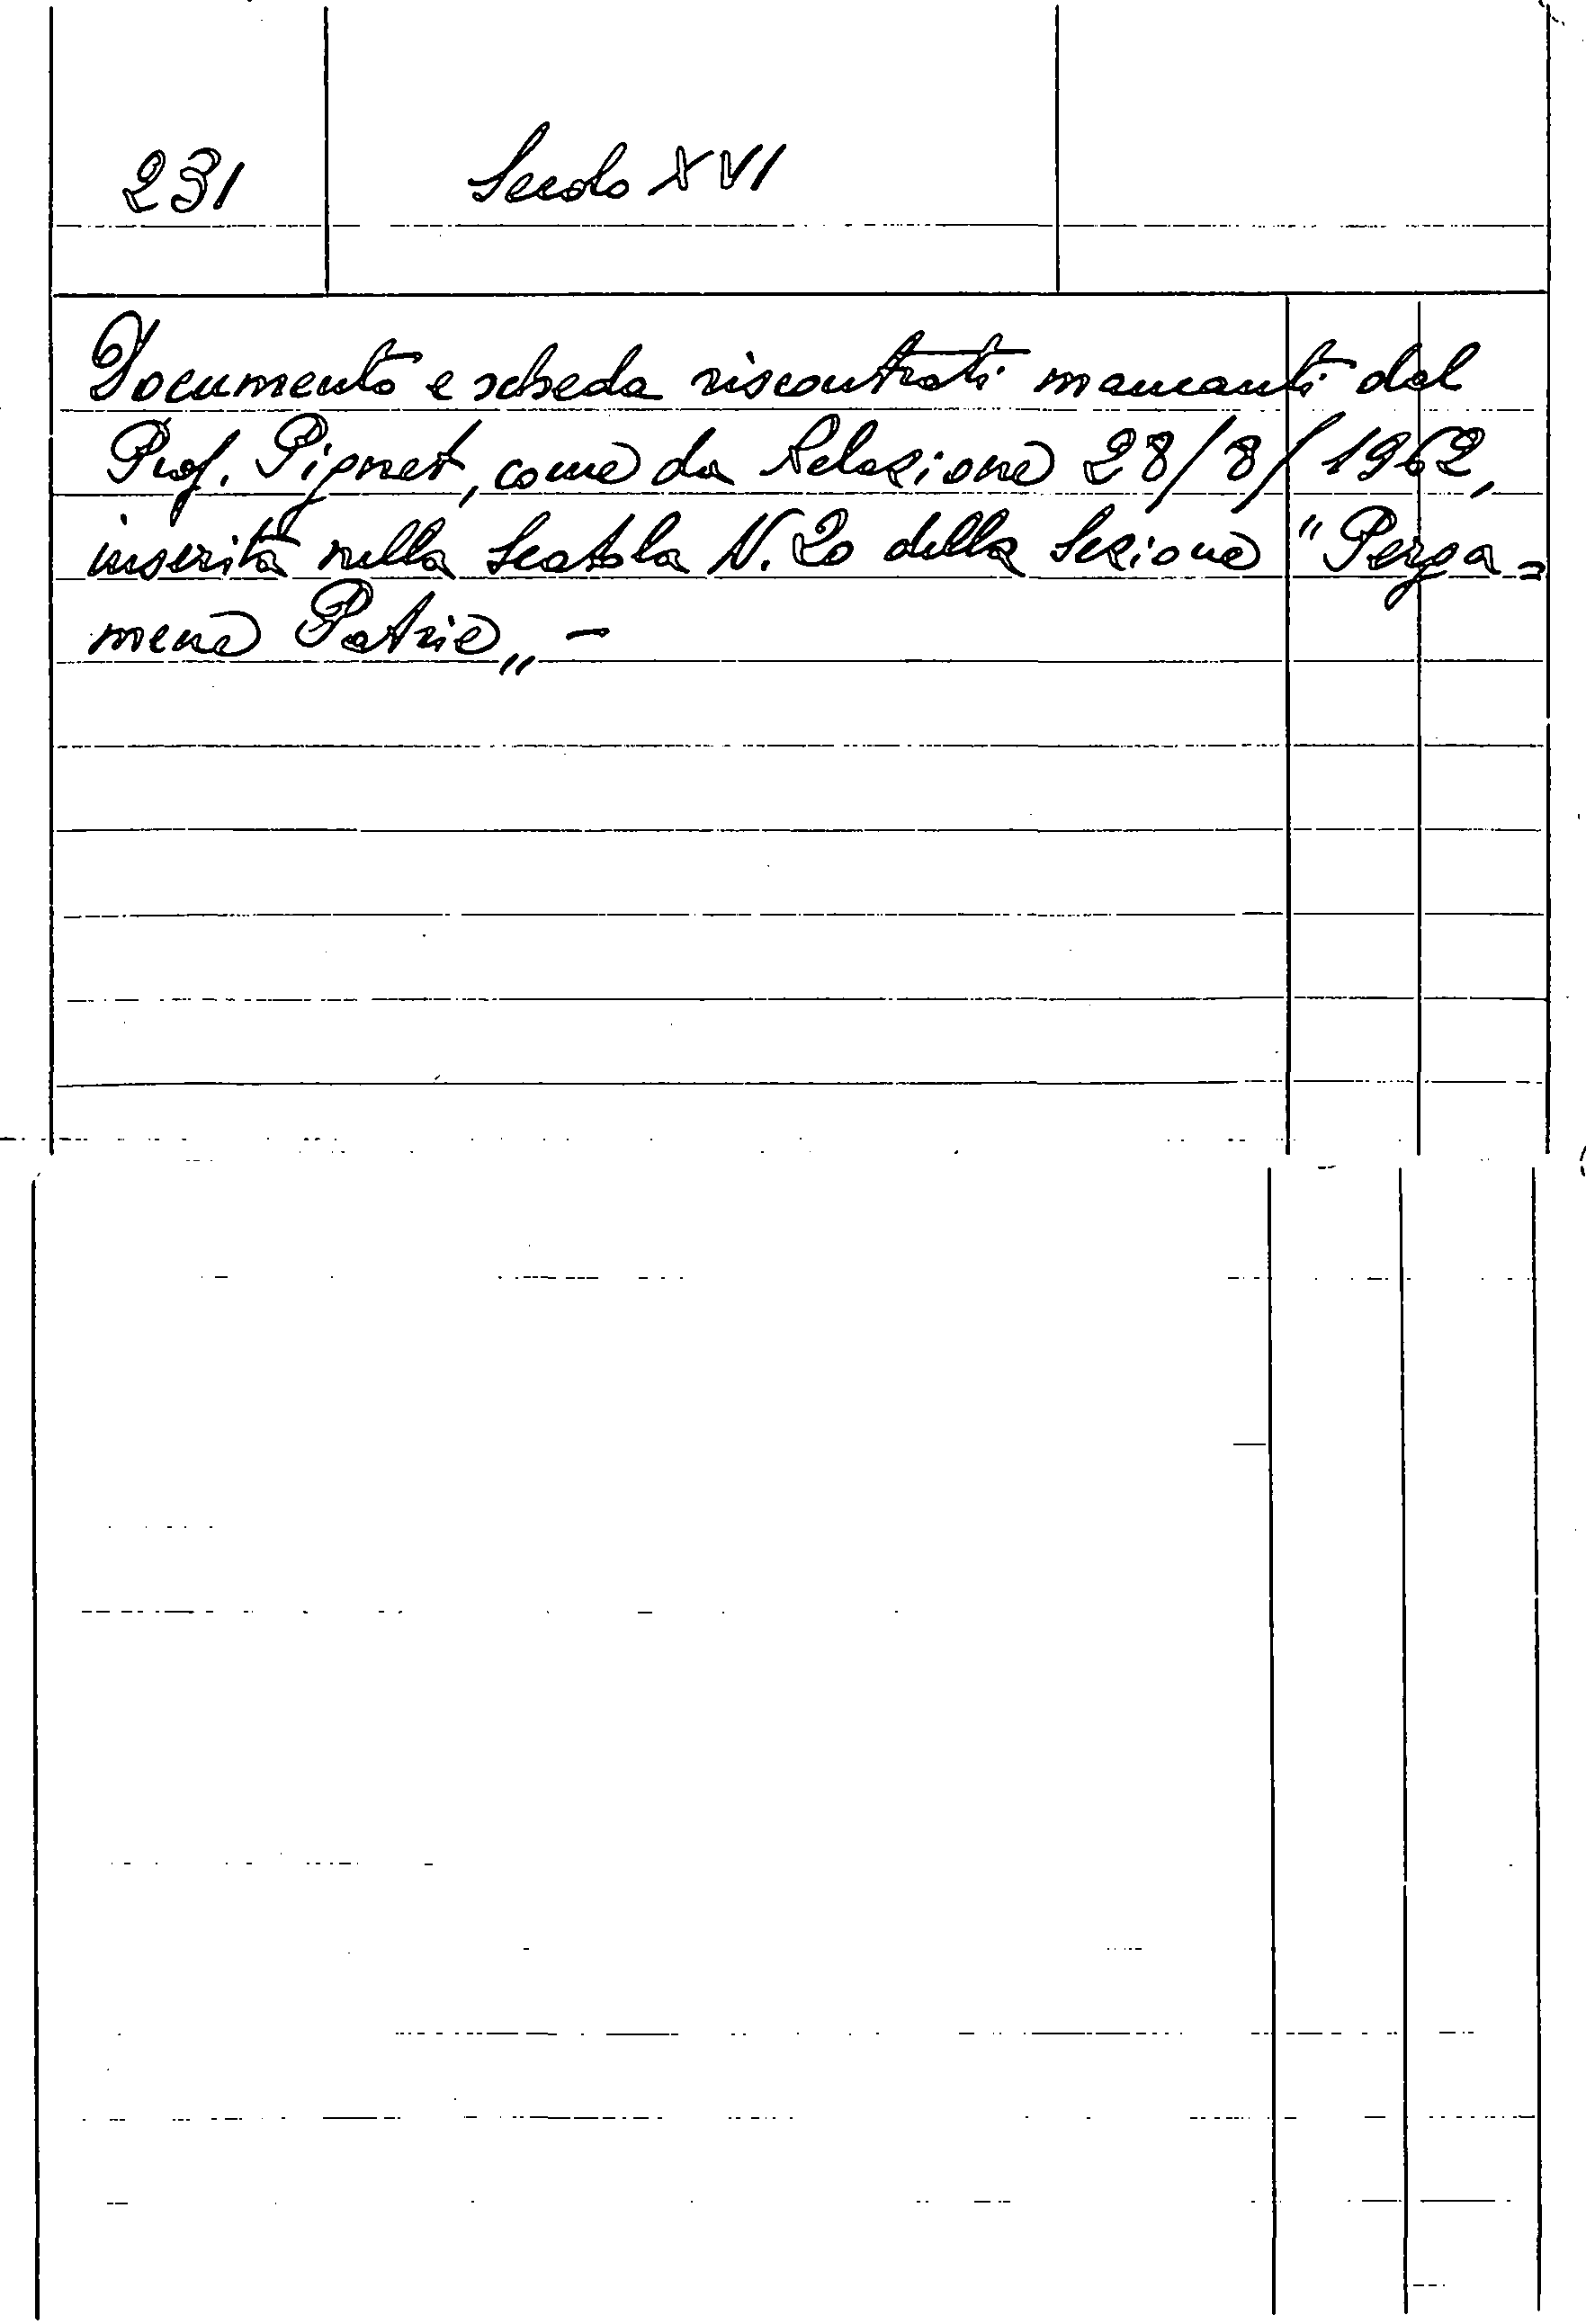 231 Secolo XVI
Documento e scheda riscontrati mancanti dal
Prof. Pignet, come da Relazione 28/8/1962,
inserita nella Scatola N. 20 della Sezione "Perga=
mene Patrie„ -